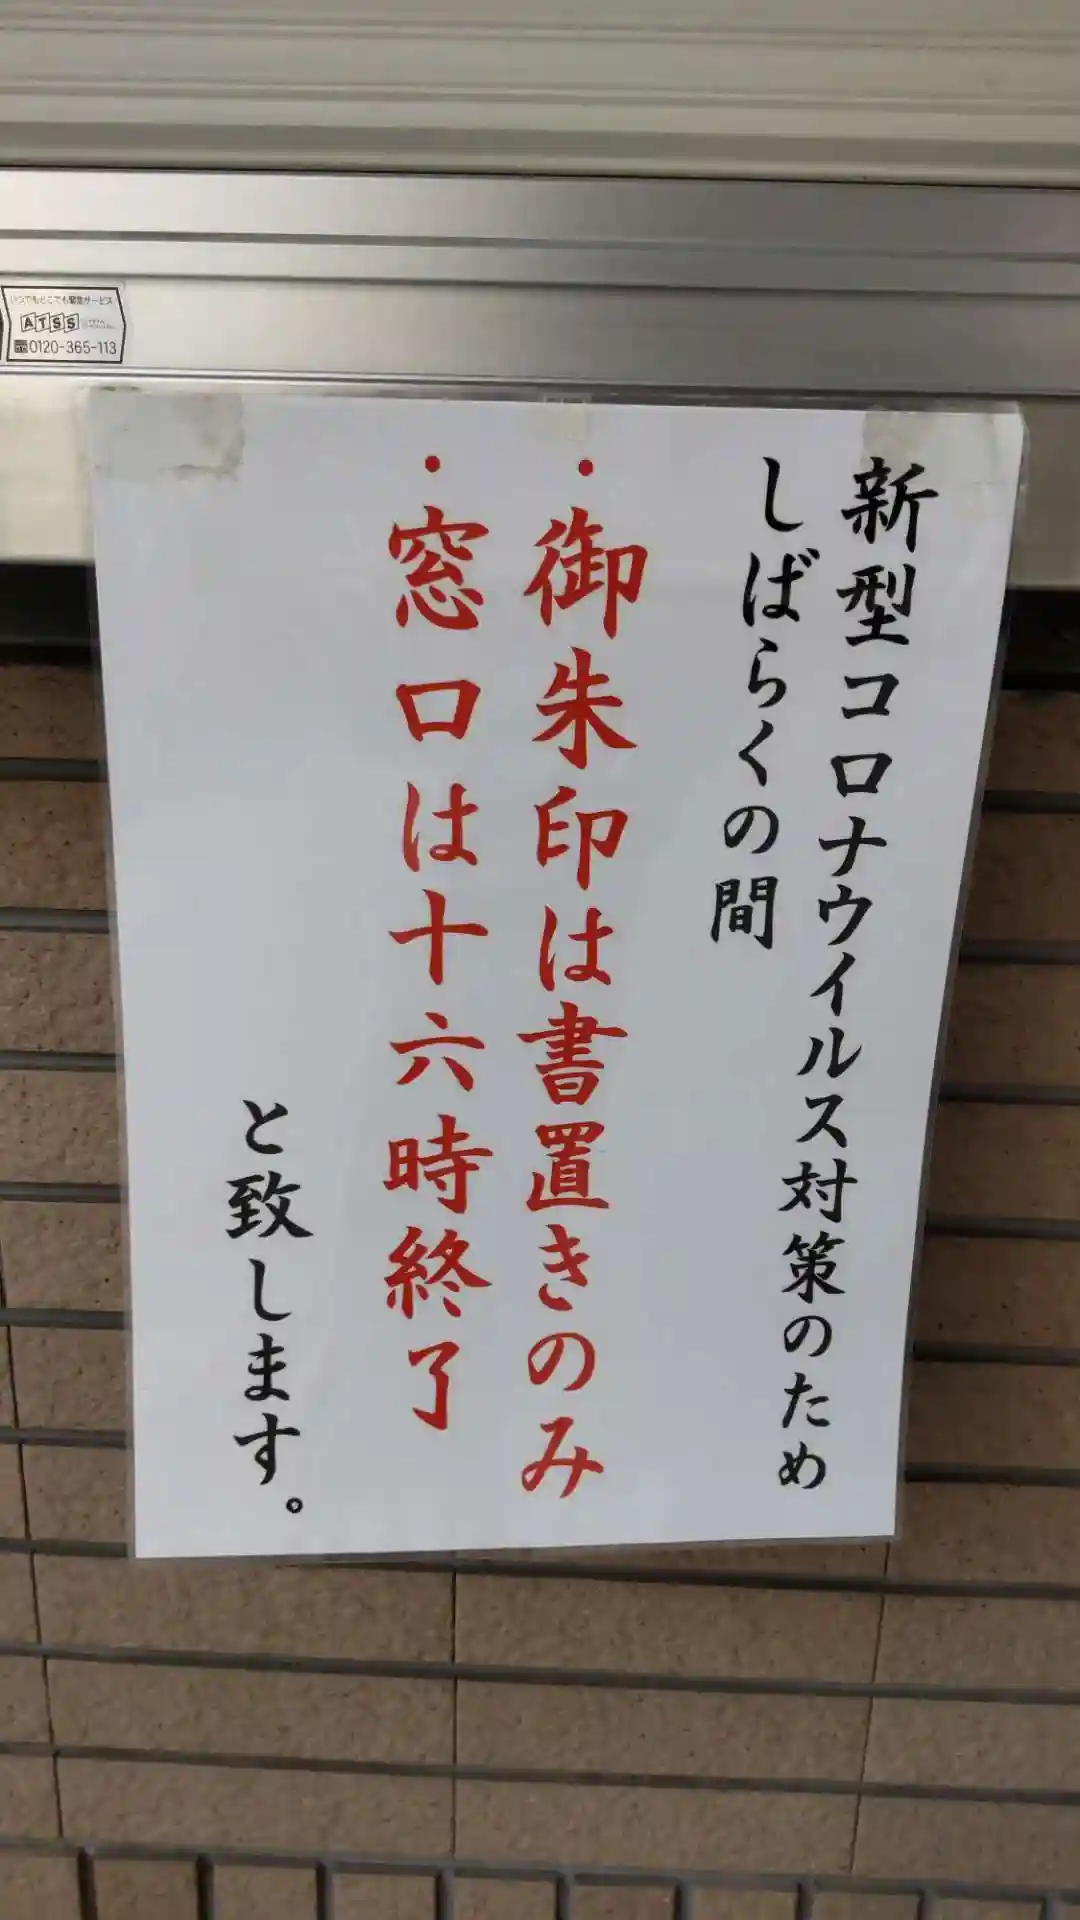 いつでもどこでも緊急サービス
ATSS
0120-365-113
新型コロナウイルス対策のため
しばらくの間
・御朱印は書置きのみ
・窓口は十六時終了
と致します。